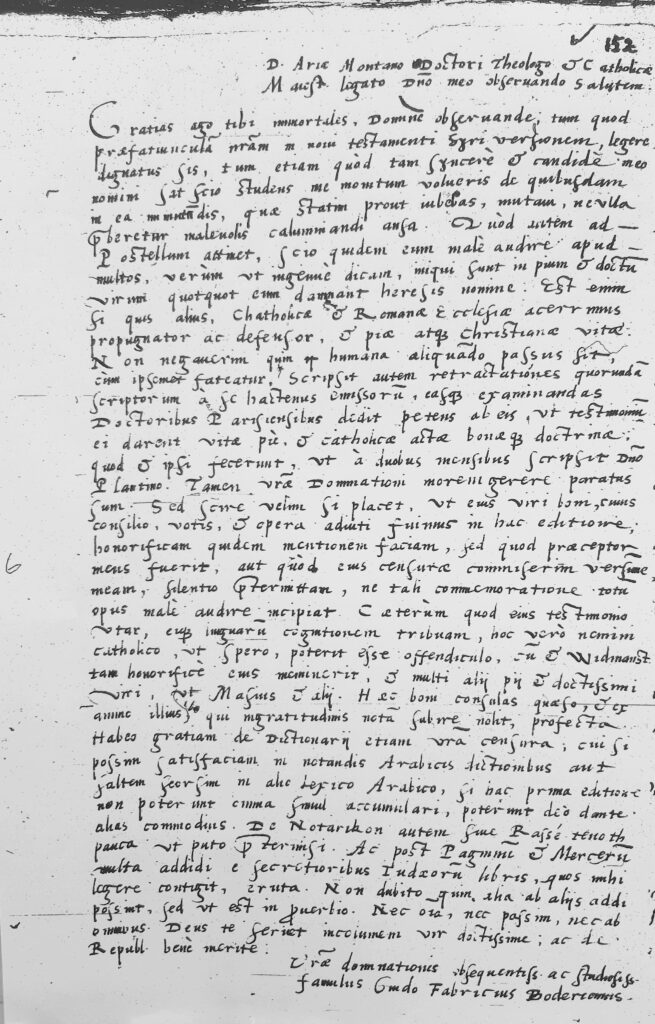 152
D. Ariæ Montano Doctori Theologo & Catholicæ
Maiest. legato Dño meo observando Salutem.
Gratias ago tibi immortales, Domine observande, tum quod
præfatiunculā nr̄am in novi testamenti Syri versionem, legere
dignatus sis, tum etiam quòd tam syncerè & candidè meo
nomini sat scio studens me monitum volueris de quibusdam
in ea immutādis, quæ statim prout iubebas, mutavi, ne ulla
p̄beretur malevolis calumniandi ansa. Quòd autem ad
Postellum attinet, scio quidem eum malè audire apud
multos, verùm ut ingenuè dicam, iniqui sunt in pium & doctū
virum quotquot eum damnant heresis nomine. Est enim
si quis alius, Chatholicæ & Romanæ Ecclesiæ acerrimus
propugnator ac defensor, & piæ atq; Christianæ vitæ.
Non negaverim quin humana aliquādo passus sit,
cùm ipsemet fateatur, Scripsit autem retractationes quorundā
scriptorum à se hactenus emissorū, easq; examinandas
Doctoribus Parisiensibus dedit petens ab eis, ut testimoniū
ei darent vitæ piè, & catholicæ actæ bonæq; doctrinæ;
quod & ipsi fecerunt, ut à duobus mensibus scripsit Dño
Plantino. Tamen vr̄æ Dominationi morem gerere paratus
sum. Sed scire velim si placet, ut eius viri boni, cuius
consilio, votis, & opera adiuti fuimus in hac editione,
honorificam quidem mentionem faciam, sed quod præceptor
meus fuerit, aut quòd eius censuræ commiserim versionē
meam, silentio p̄termittam, ne tali commemoratione totū
opus malè audire incipiat. Cæterùm quod eius testimonio
utar, eiq; linguarū cognitionem tribuam, hoc verò nemini
catholico, ut spero, poterit esse offendiculo, cū & Widmanst
tam honorificè eius meminerit, & multi alij pij & doctissimi
viri, ut Masius & alij. Hæc boni consulas quæso, & ex
animo illius, qui ingratitudinis notā subire nolit, profecta
Habeo gratiam de Dictionarij etiam vr̄a censura; cui si
possim satisfaciam in notandis Arabicis dictionibus aut
saltem seorsim in alio Lexico Arabico, si hac prima editione
non poterunt omnia simul accumulari, poterunt deo dante
alias commodius. De Notarikon autem sive Rassé tevoth
pauca ut puto p̄termisi. Ac post Pagninū & Mercerū
multa addidi e secretioribus Iudæorū libris, quos mihi
legere contigit, eruta. Non dubito quin alia ab alijs addi
possint, sed ut est in p̄verbio. Nec oīa, nec passim, nec ab
omnibus. Deus te servet incolumem vir doctissime, ac de
Republ. benè merite.
Vr̄æ dominationis obsequentiss. ac studiosiss.
famulus Guido Fabricius Boderianus.
6